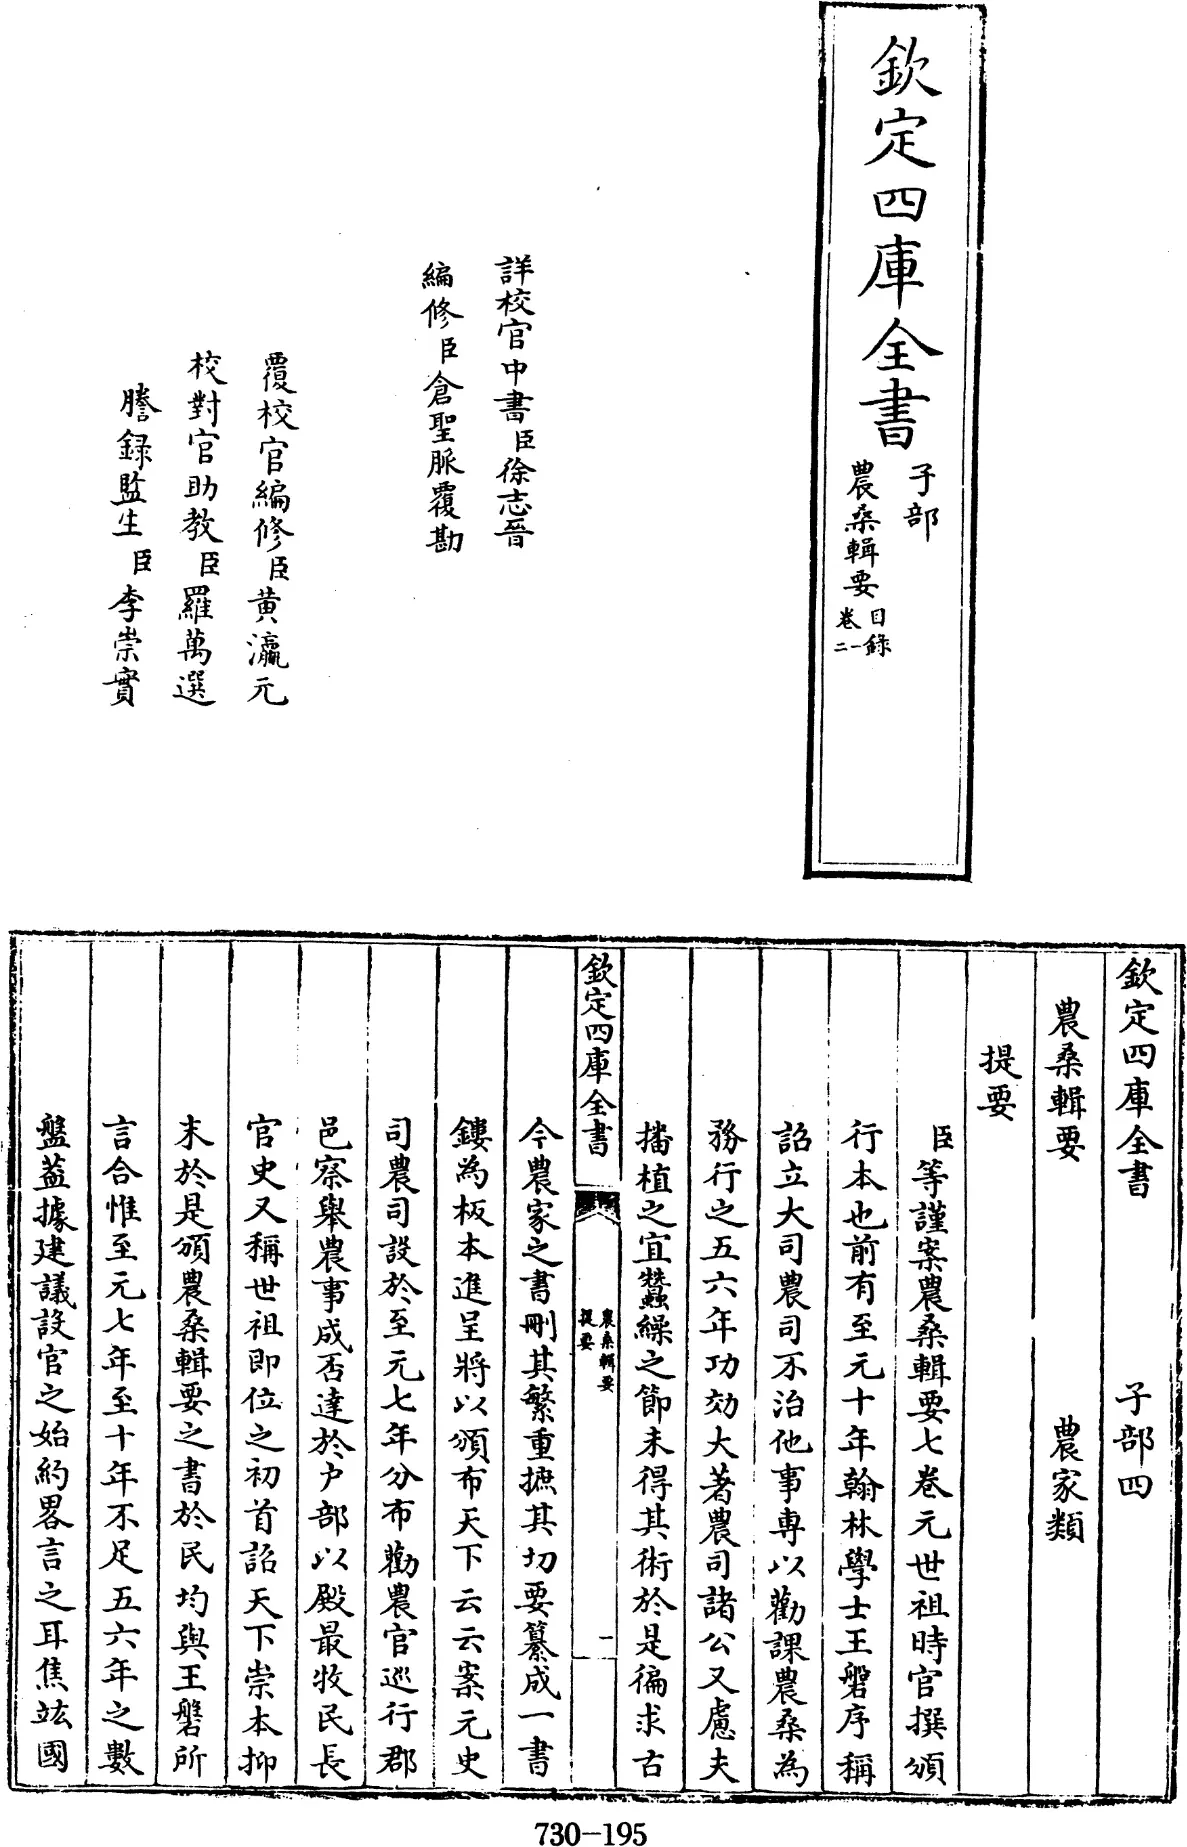 欽定四庫全書
子部
農桑輯要
目錄
卷一二
詳校官中書臣徐志晉
編修臣倉聖脈覆勘
覆校官編修臣黄瀛元
校對官助教臣羅萬選
謄錄監生臣李崇實
欽定四庫全書 子部四
農桑輯要 農家類
提要
臣等謹案農桑輯要七卷元世祖時官撰頒
行本也前有至元十年翰林學士王磐序稱
詔立大司農司不治他事専以勸課農桑為
務行之五六年功効大著農司諸公又慮夫
播植之宜蠶繰之節未得其術於是徧求古
欽定四庫全書
農桑輯要
提要
一
今農家之書刪其繁重摭其切要纂成一書
鏤為板本進呈將以頒布天下云云案元史
司農司設於至元七年分布勸農官巡行郡
邑察舉農事成否達於户部以殿最牧民長
官史又稱世祖即位之初首詔天下崇本抑
末於是頒農桑輯要之書於民均與王磐所
言合惟至元七年至十年不足五六年之數
盤葢據建議設官之始約畧言之耳焦竑國
730-195